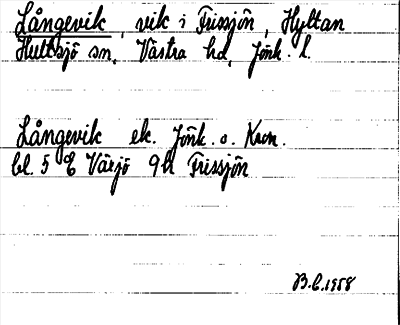 Långevik, vik i Frissjön, Hyltan
Hultsjö sn, Västra hd, Jönk. l.
Långevik ek. Jönk. o. Kron.
bl. 5 E Växjö 9h Frissjön
B.L. 1958